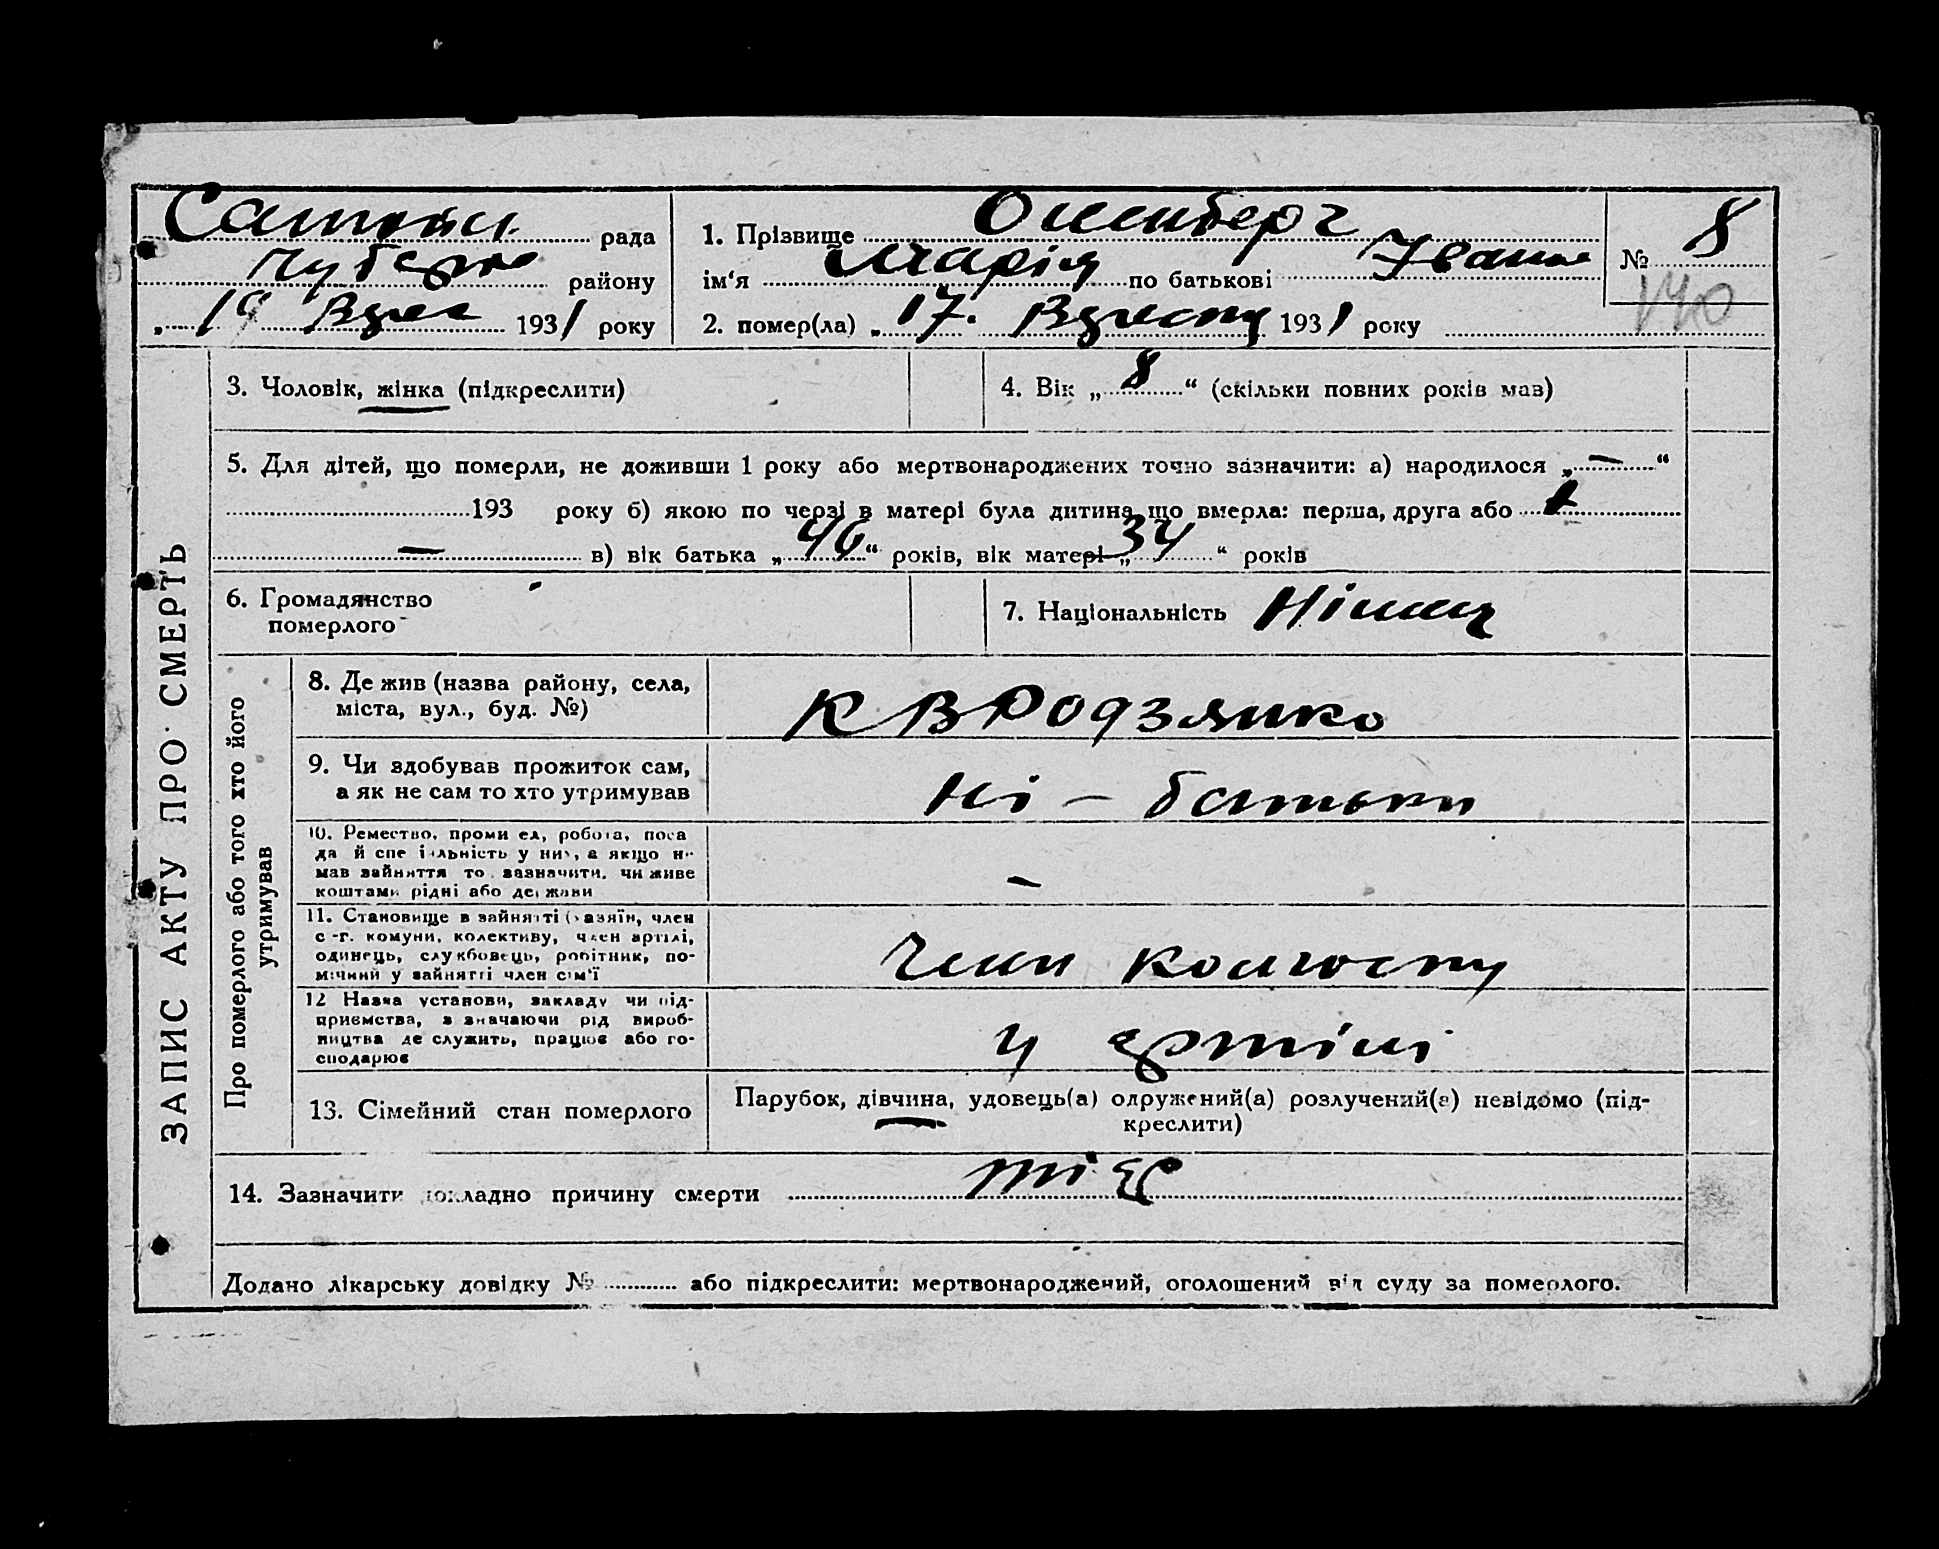 рада
району
„ 19 Верес 1931 року
1. Прізвище
ім‘я Марія по батькові Іванів
2. помер(ла) „ 17. Вересну 1931 року
№ 8
140
ЗАПИС АКТУ ПРО СМЕРТЬ
3. Чоловік, жінка (підкреслити)
4. Вік „ 8 “ (скільки повних років мав)
5. Для дітей, що померли, не доживши 1 року або мертвонароджених точно зазначити: а) народилося „ — “
193 року б) якою по черзі в матері була дитина що вмерла: перша, друга або
— в) вік батька „ 46 “ років, вік матері „ 34 “ років
6. Громадянство
померлого
7. Національність Німец
Про померлого або того хто його
утримував
8. Де жив (назва району, села,
міста, вул., буд. №)
К В Родзянко
9. Чи здобував прожиток сам,
а як не сам то хто утримував
Ні — батьки
10. Ремество, проми ел, робота, поса
да й спе іальність у них, а якщо н
мав зайняття то зазначити, чи живе
коштами рідні або держави
—
11. Становище в зайнятті (хазяїн, член
с -г. комуни, колективу, член артілі,
одинець, службовець, робітник, по-
мічний у зайнятті член сім‘ї
Член колгоспу
12 Назва установи, закладу чи під-
приємства, зазначаючи рід вироб-
ництва де служить, працює або го-
сподарює
у артілі
13. Сімейний стан померлого
Парубок, дівчина, удовець(а) одружений(а) розлучений(а) невідомо (під-
креслити)
14. Зазначити докладно причину смерти
Додано лікарську довідку № або підкреслити: мертвонароджений, оголошений від суду за померлого.